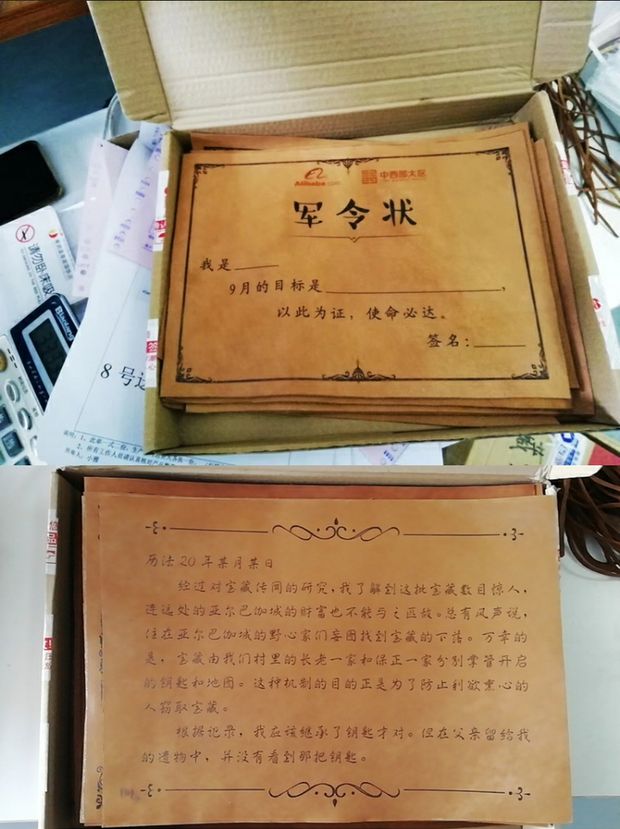 Alibaba.com
中西部大区
军令状
我是
9月的目标是,
以此为证，使命必达。
签名：
请勿卧床吸
8号
历法20年某月某日
经过对宝藏传闻的研究，我了解到这批宝藏数目惊人，
连远处的亚尔巴伽城的财富也不能与之匹敌。总有风声说，
住在亚尔巴伽城的野心家们妄图找到宝藏的下落。万幸的
是，宝藏由我们村里的长老一家和保正一家分别掌管开启
的钥匙和地图。这种机制的目的正是为了防止利欲熏心的
人窃取宝藏。
根据记录，我应该继承了钥匙才对。但在父亲留给我
的遗物中，并没有看到那把钥匙。